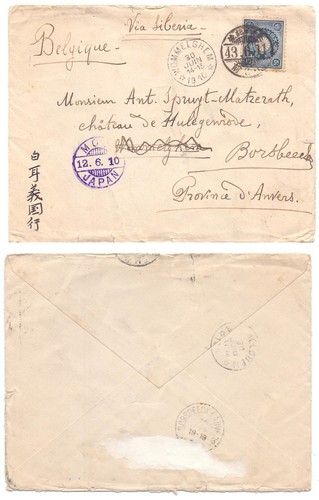 Via Siberia
Belgique
WOMMELGHEM
30
JUIN
14-15
1910
43
Monsieur Ant. Spruyt-Matzerath,
château de Hulegenrode,
Borsbeeck
Province d'Anvers.
MOJI
12.6.10
JAPAN
白耳義國行